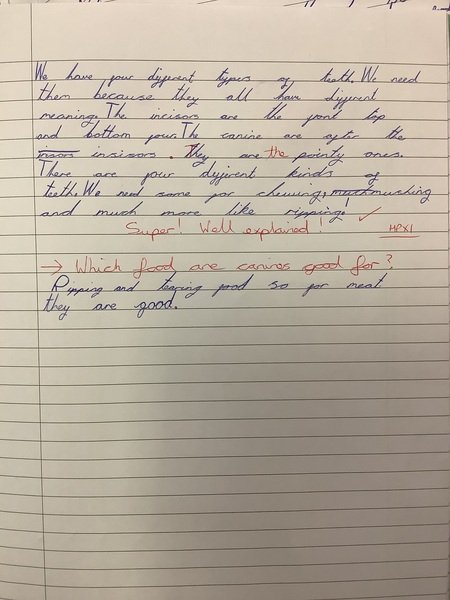 We have four different types of teeth. We need
them because they all have different
meaning. The incisors are the front top
and bottom four. The canine are after the
insors insisors. They are the pointy ones.
There are four different kinds of
teeth. We need some for chewing, muchmuching
and much more like ripping!
Super! Well explained! HPX1
→ Which food are canines good for?
Ripping and tearing food so for meat
they are good.